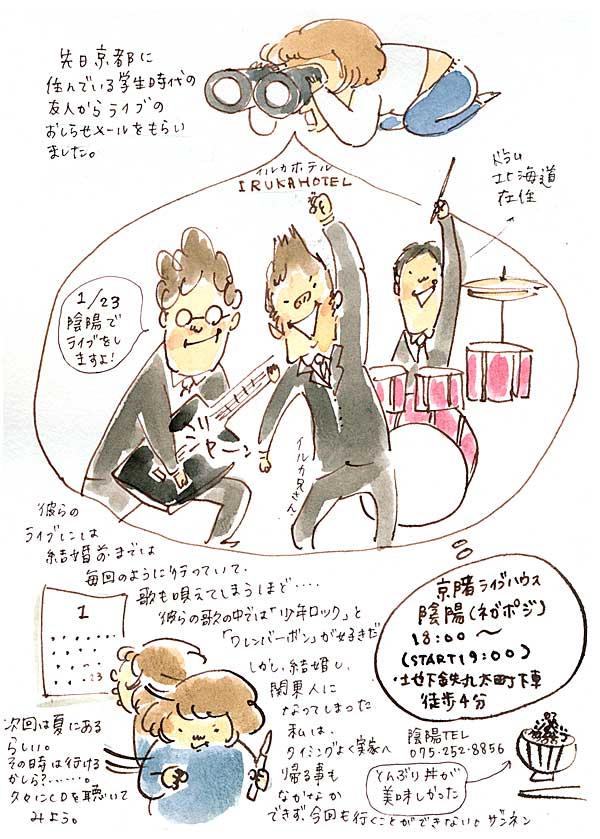 先日京都に
住んでいる学生時代の
友人からライブの
おしらせメールをもらい
ました。
イルカホテル
IRUKAHOTEL
ドラム
北海道
在住
1/23
陰陽で
ライブをし
ますよ!
ジャーン
イルカ兄さん
彼らの
ライブには
結婚前までは
毎回のように行っていて、
歌も唄えてしまうほど‥‥
彼らの歌の中では「少年ロック」と
「ワレンバーボン」がせるきだ
しかし、結婚し、
関東人に
なってしまった
私は、
タイミングよく実家へ
帰る事も
なかなか
できず、今回も行くことができない。ザンネン
1
23
次回は夏にある
らしい。
その時は行ける
かしら?‥‥‥。
久々にCDを聴いて
みよう。
京都ライブハウス
陰陽(ネガポジ)
18:00〜
(START19:00)
・地下鉄丸太町下車
徒歩4分
陰陽TEL
075-252-8856
どんぶり丼が
美味しかった